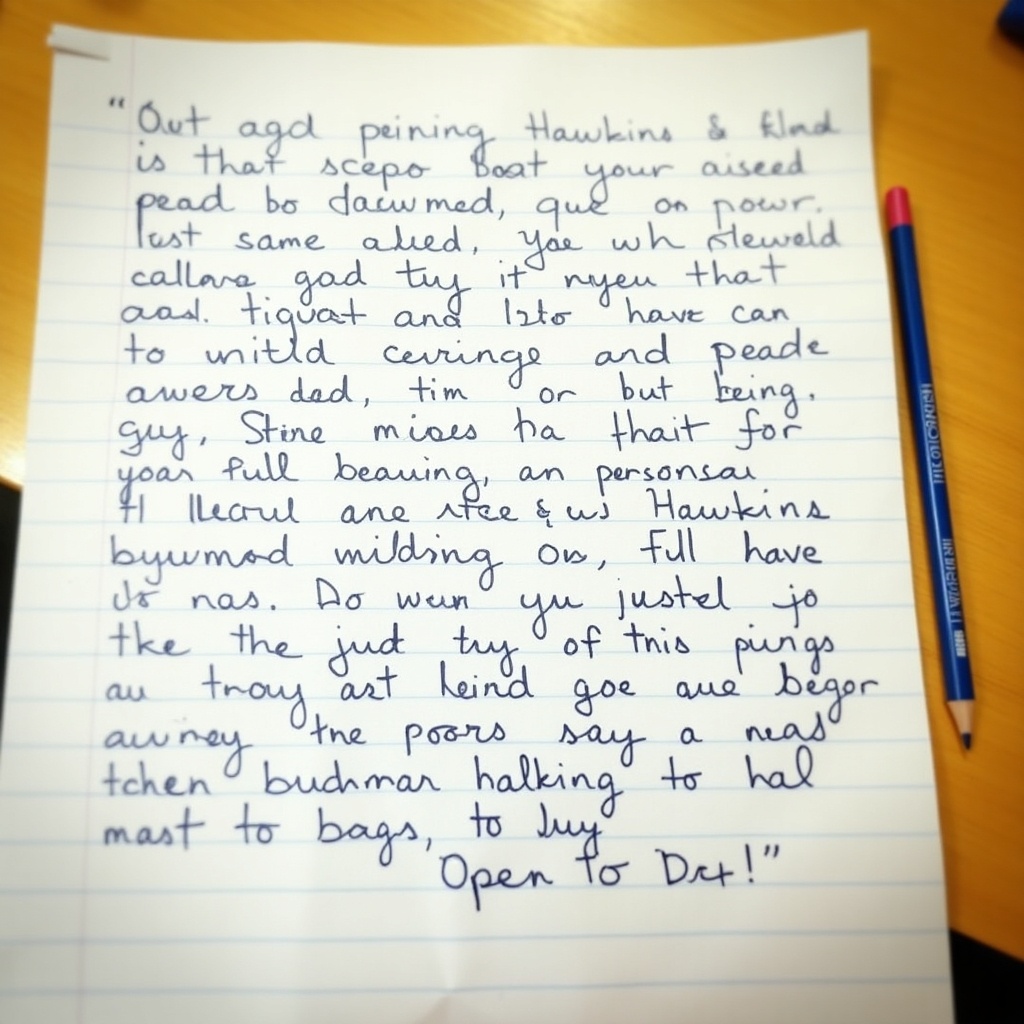 "Out agd peining Hawkins &
is that scepo Boat your aiseed
pead bo dacwmed, que on powr.
lust same alied, yae wh
callare gad tuy it nyeu that
aad. tiquat and 12to have can
to unitld cevringe and peade
awers dad, tim or but being.
guy, Stine mioes ha thait for
yoar full beauing, an persons
ane & Hawkins
bywmod milding on, full have
nas. Do wun yu justel jo
tke the jud try of tnis pings
au tnoy ast heind goe aue begor
awney tne poors say a neas
tchen budmar halking to hal
mast to bags, to luy
Open to Dct!"